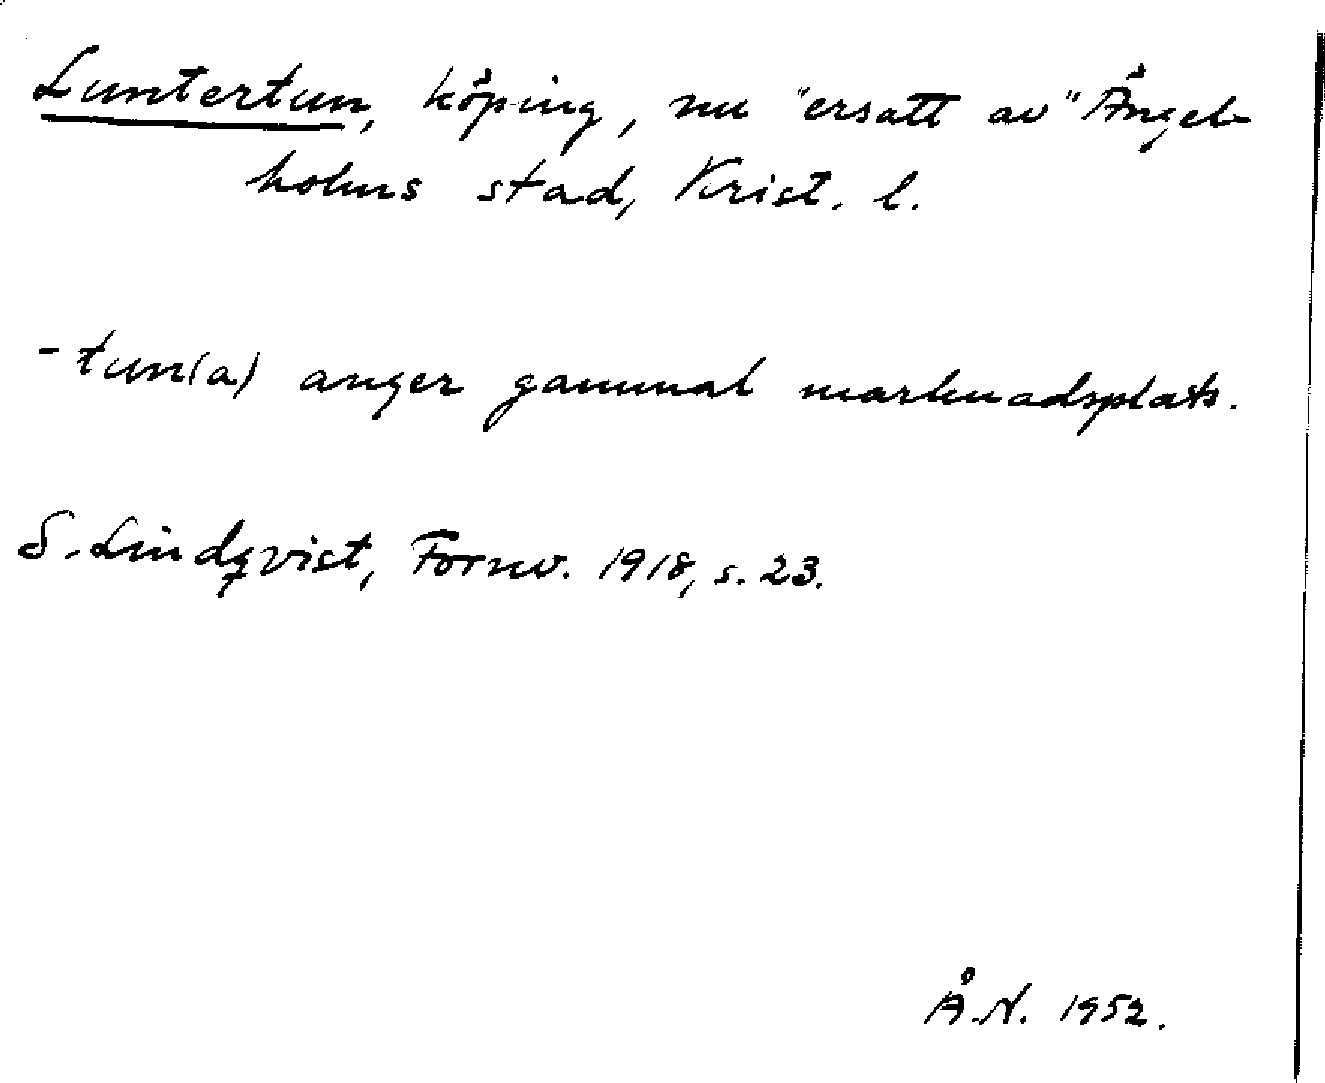 Luntertun, köping, nu "ersatt av" Ängel-
holms stad, Krist. l.
-tun(a) anger gammal marknadsplats.
S. Lindqvist, Fornv. 1918, s. 23.
Å.N. 1952.